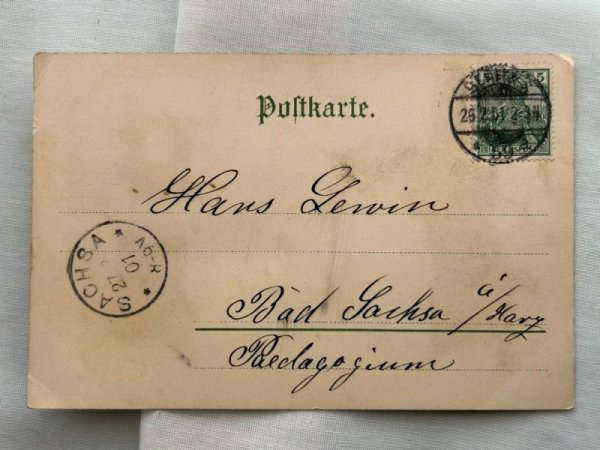 Postkarte.
5
26.2.01. 2-3N
Hans Lewin
SACHSA
27
01
8-9V
Bad Sachsa i/Harz
Paedagogium